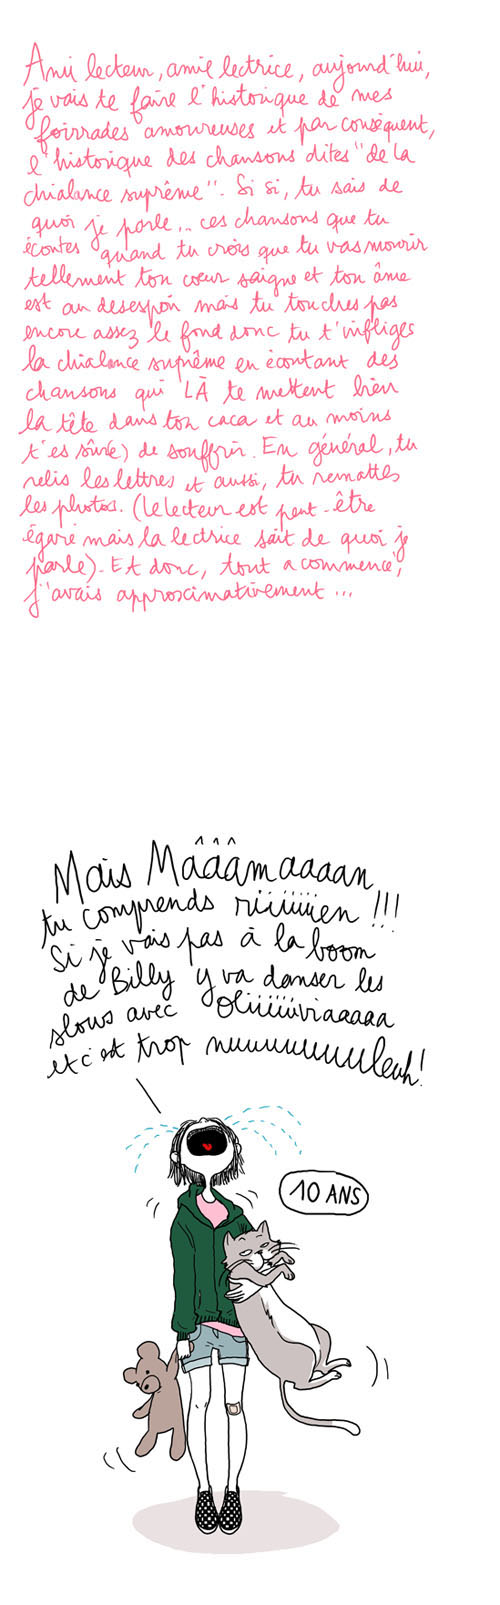 Ami lecteur, amie lectrice, aujourd'hui,
je vais te faire l'historique de mes
foirrades amoureuses et par conséquent,
l'historique des chansons dites "de la
chialance suprême". Si si, tu sais de
quoi je parle... ces chansons que tu
écoutes quand tu crois que tu vas mourir
tellement ton cœur saigne et ton âme
est au desespoir mais tu touches pas
encore assez le fond donc tu t'infliges
la chialance suprême en écoutant des
chansons qui LÀ te mettent bien
la tête dans ton caca et au moins
t'es sûr(e) de souffrir. En général, tu
relis les lettres et aussi, tu remattes
les photos. (Le lecteur est peut-être
égaré mais la lectrice sait de quoi je
parle). Et donc, tout a commencé,
j'avais approximativement ...
Mais Mâââmaaaan
tu comprends riiiiiiien !!!
Si je vais pas à la boom
de Billy y va danser les
slows avec Oliiiiiiviaaaaa
et c'est trop nuuuuuuuuleuh!
10 ANS